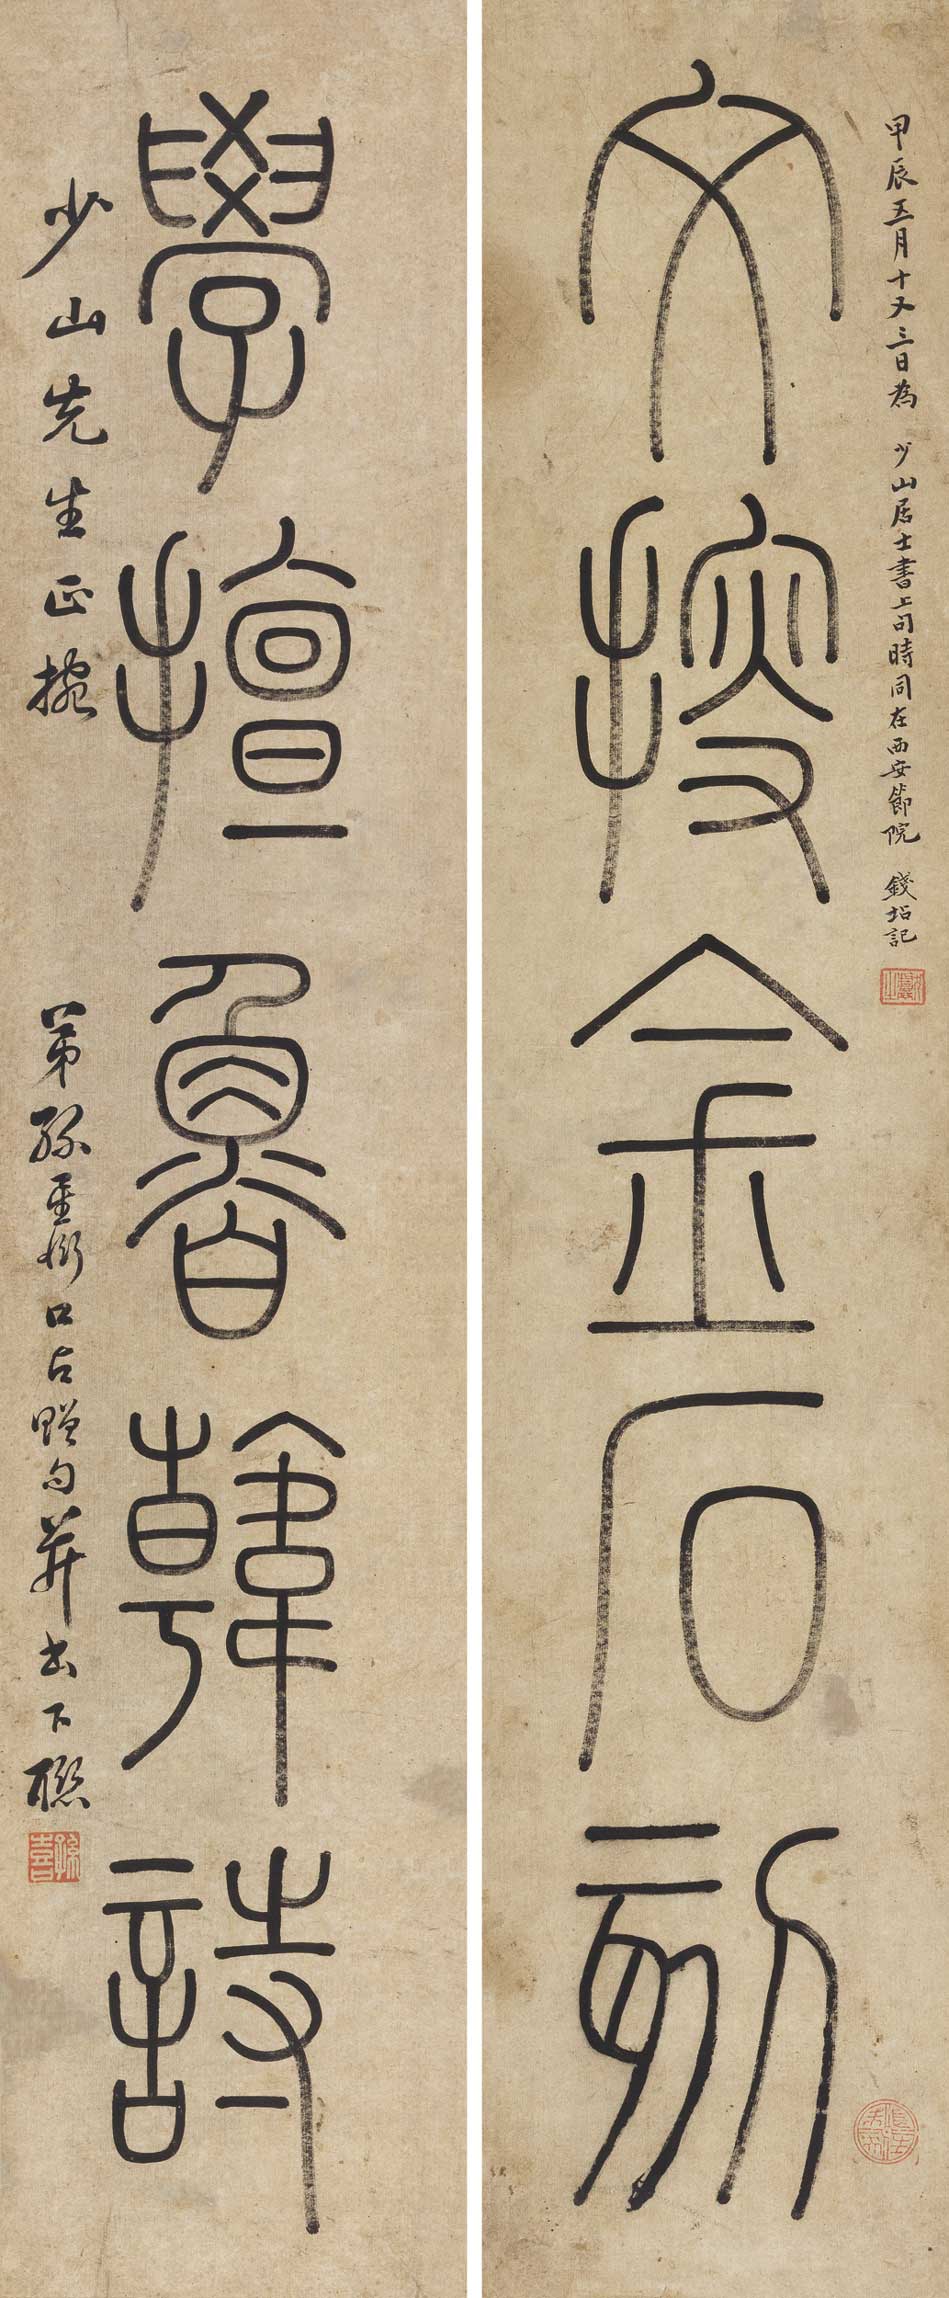 甲辰五月十又三日為 少山居士書上句時同在西安節院 錢坫記
文搜金石刻
學擅魯韓詩
少山先生正捥 弟孫星衍口占贈句并書下聯